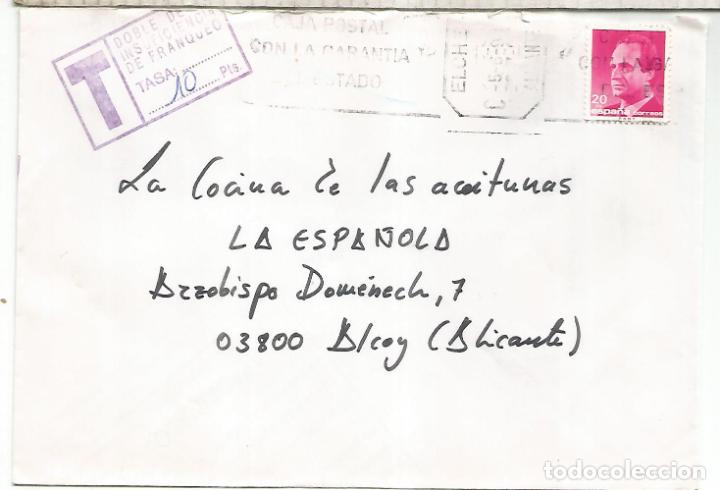 T
DOBLE DE
INSUFICIENCIA
DE FRANQUEO
TASA: 10 Pts.
CAJA POSTAL
CON LA GARANTIA
ESTADO
ELCHE
20
España correos
La Cocina de las aceitunas
LA ESPAÑOLA
Arzobispo Doménech, 7
03800 Alcoy (Alicante)
todocoleccion